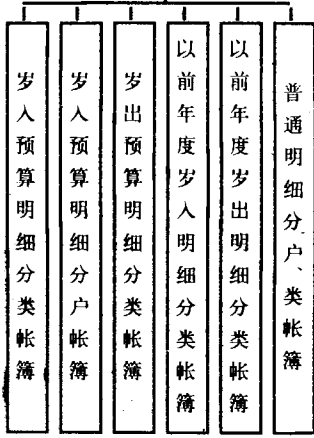 岁入预算明细分类帐簿
岁入预算明细分户帐簿
岁出预算明细分类帐簿
以前年度岁入明细分类帐簿
以前年度岁出明细分类帐簿
普通明细分户、类帐簿